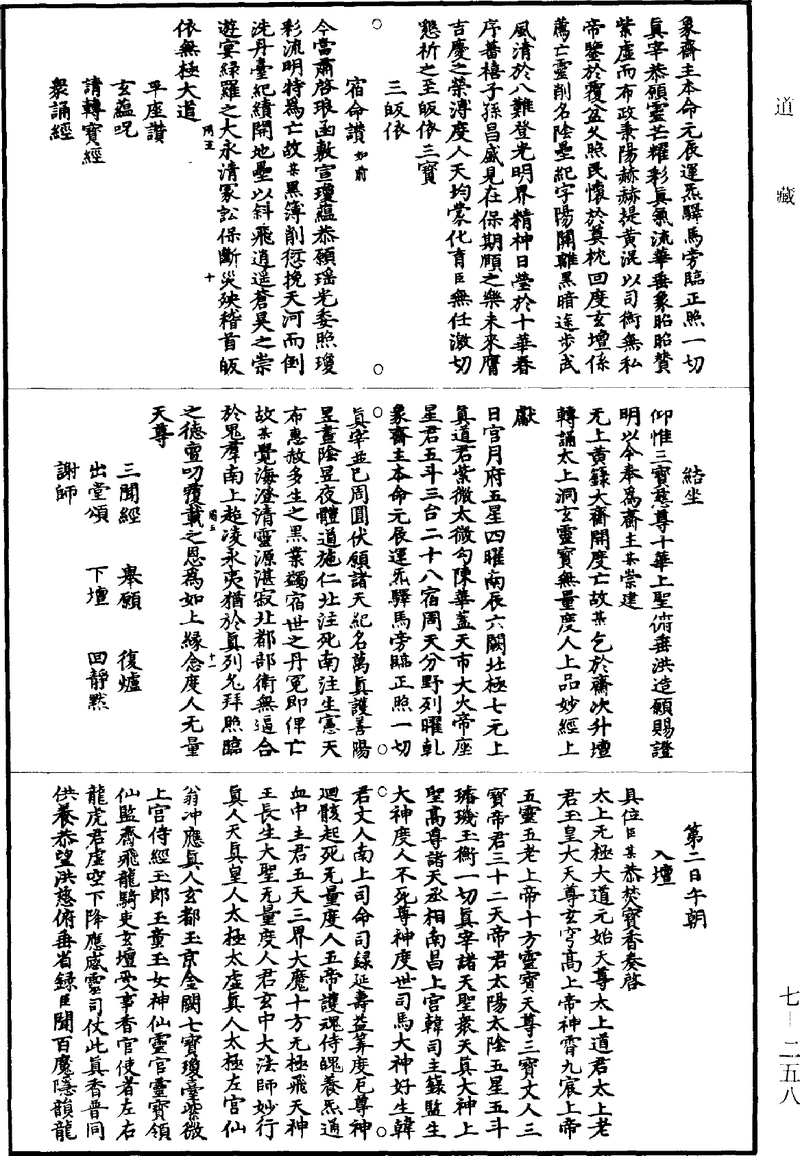 道藏
象齋主本命元辰運炁驛馬旁臨正照一切
真宰恭願靈芒耀彩真氣流華垂象昭昭贊
紫虛而布政秉陽赫赫提黃混以司衡無私
帝鑒於覆盆久照民懷於奠枕回度玄壇係
薦亡靈削名陰壘紀字陽關離黑暗途步武
風清於八難登光明界精神日瑩於十華春
序蕃禧子孫昌盛見在保期頤之樂未來膺
吉慶之榮溥度人天均蒙化育臣無任激切
懇祈之至皈依三寶
三皈依
宿命讚如前
今當肅啓琅函敷宣瓊蘊恭願瑤光委照瓊
彩流明特為亡故某黑簿削愆挽天河而倒
洗丹臺紀績開地壘以斜飛逍遥蒼昊之崇
遊宴綠羅之大永清冢訟保斷災殃稽首皈
依無極大道
平座讚
玄蘊呪
請轉寶經
衆誦經
結坐
仰惟三寶慈尊十華上聖俯垂洪造願賜證
明以今奉為齋主某崇建
无上黃籙大齋開度亡故某乞於齋次升壇
轉誦太上洞玄靈寶無量度人上品妙經上
獻
日宮月府五星四曜南辰六闕北極七元上
真道君紫微太微勾陳華蓋天市大火帝座
星君五斗三台二十八宿周天分野列曜軋
象齋主本命元辰運炁驛馬旁臨正照一切
真宰並已周圓伏願諸天紀名萬真護善陽
昱晝陰昱夜體道施仁北注死南注生憲天
布惠赦多生之黑業蠲宿世之丹冤即俾亡
故某覺海澄清靈源湛寂北都部衛無逼合
於鬼羣南上超凌永夷猶於真列允拜照臨
之德電叨覆載之恩為如上緣念度人无量
天尊
三聞經　舉願　復爐
出堂頌　下壇　回靜默
謝師
第二日午朝
入壇
具位臣某恭焚寶香奏啓
太上无極大道元始天尊太上道君太上老
君玉皇大天尊玄穹高上帝神霄九宸上帝
五靈五老上帝十方靈寶天尊三寶丈人三
寶帝君三十二天帝君太陽太陰五星五斗
璿璣玉衡一切真宰諸天聖衆天真大神上
聖高尊諸天丞相南昌上宮韓司主錄監生
大神度人不死尊神度世司馬大神好生韓
君丈人南上司命司錄延壽益筭度厄尊神
迴骸起死无量度人五帝護魂侍魄養炁通
血中主君五天三界大魔十方无極飛天神
王長生大聖无量度人君玄中大法師妙行
真人天真皇人太極太虛真人太極左宮仙
翁冲應真人玄都玉京金闕七寶瓊臺紫微
上宮侍經玉郎玉童玉女神仙靈官靈寶領
仙監齋飛龍騎吏玄壇受事香官使者左右
龍虎君虛空下降應感靈司仗此真香普同
供養恭望洪慈俯垂省錄臣聞百魔隱韻龍
七－二五八